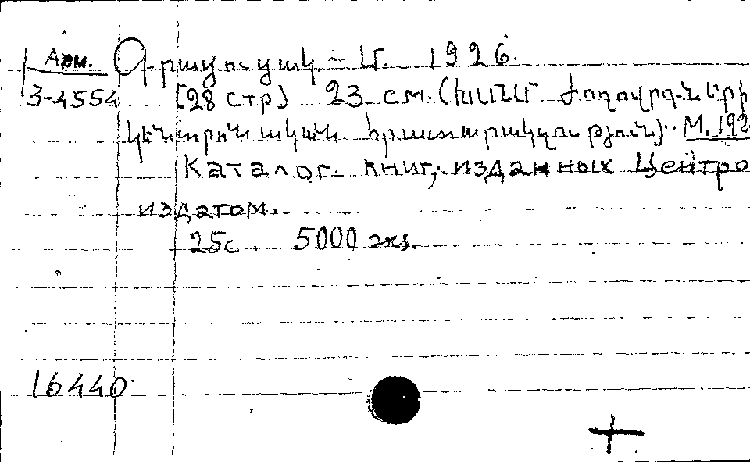 Арм. Գրացուցակ – Մ. 1926.
3-4554 [28 стр] 23 см. (ԽՍՀՄ Ժողովրդների
կենտրոնական հրատարակչություն). М. 192
Каталог книг, изданных Центро
издатом.
25с. 5000 экз.
16440